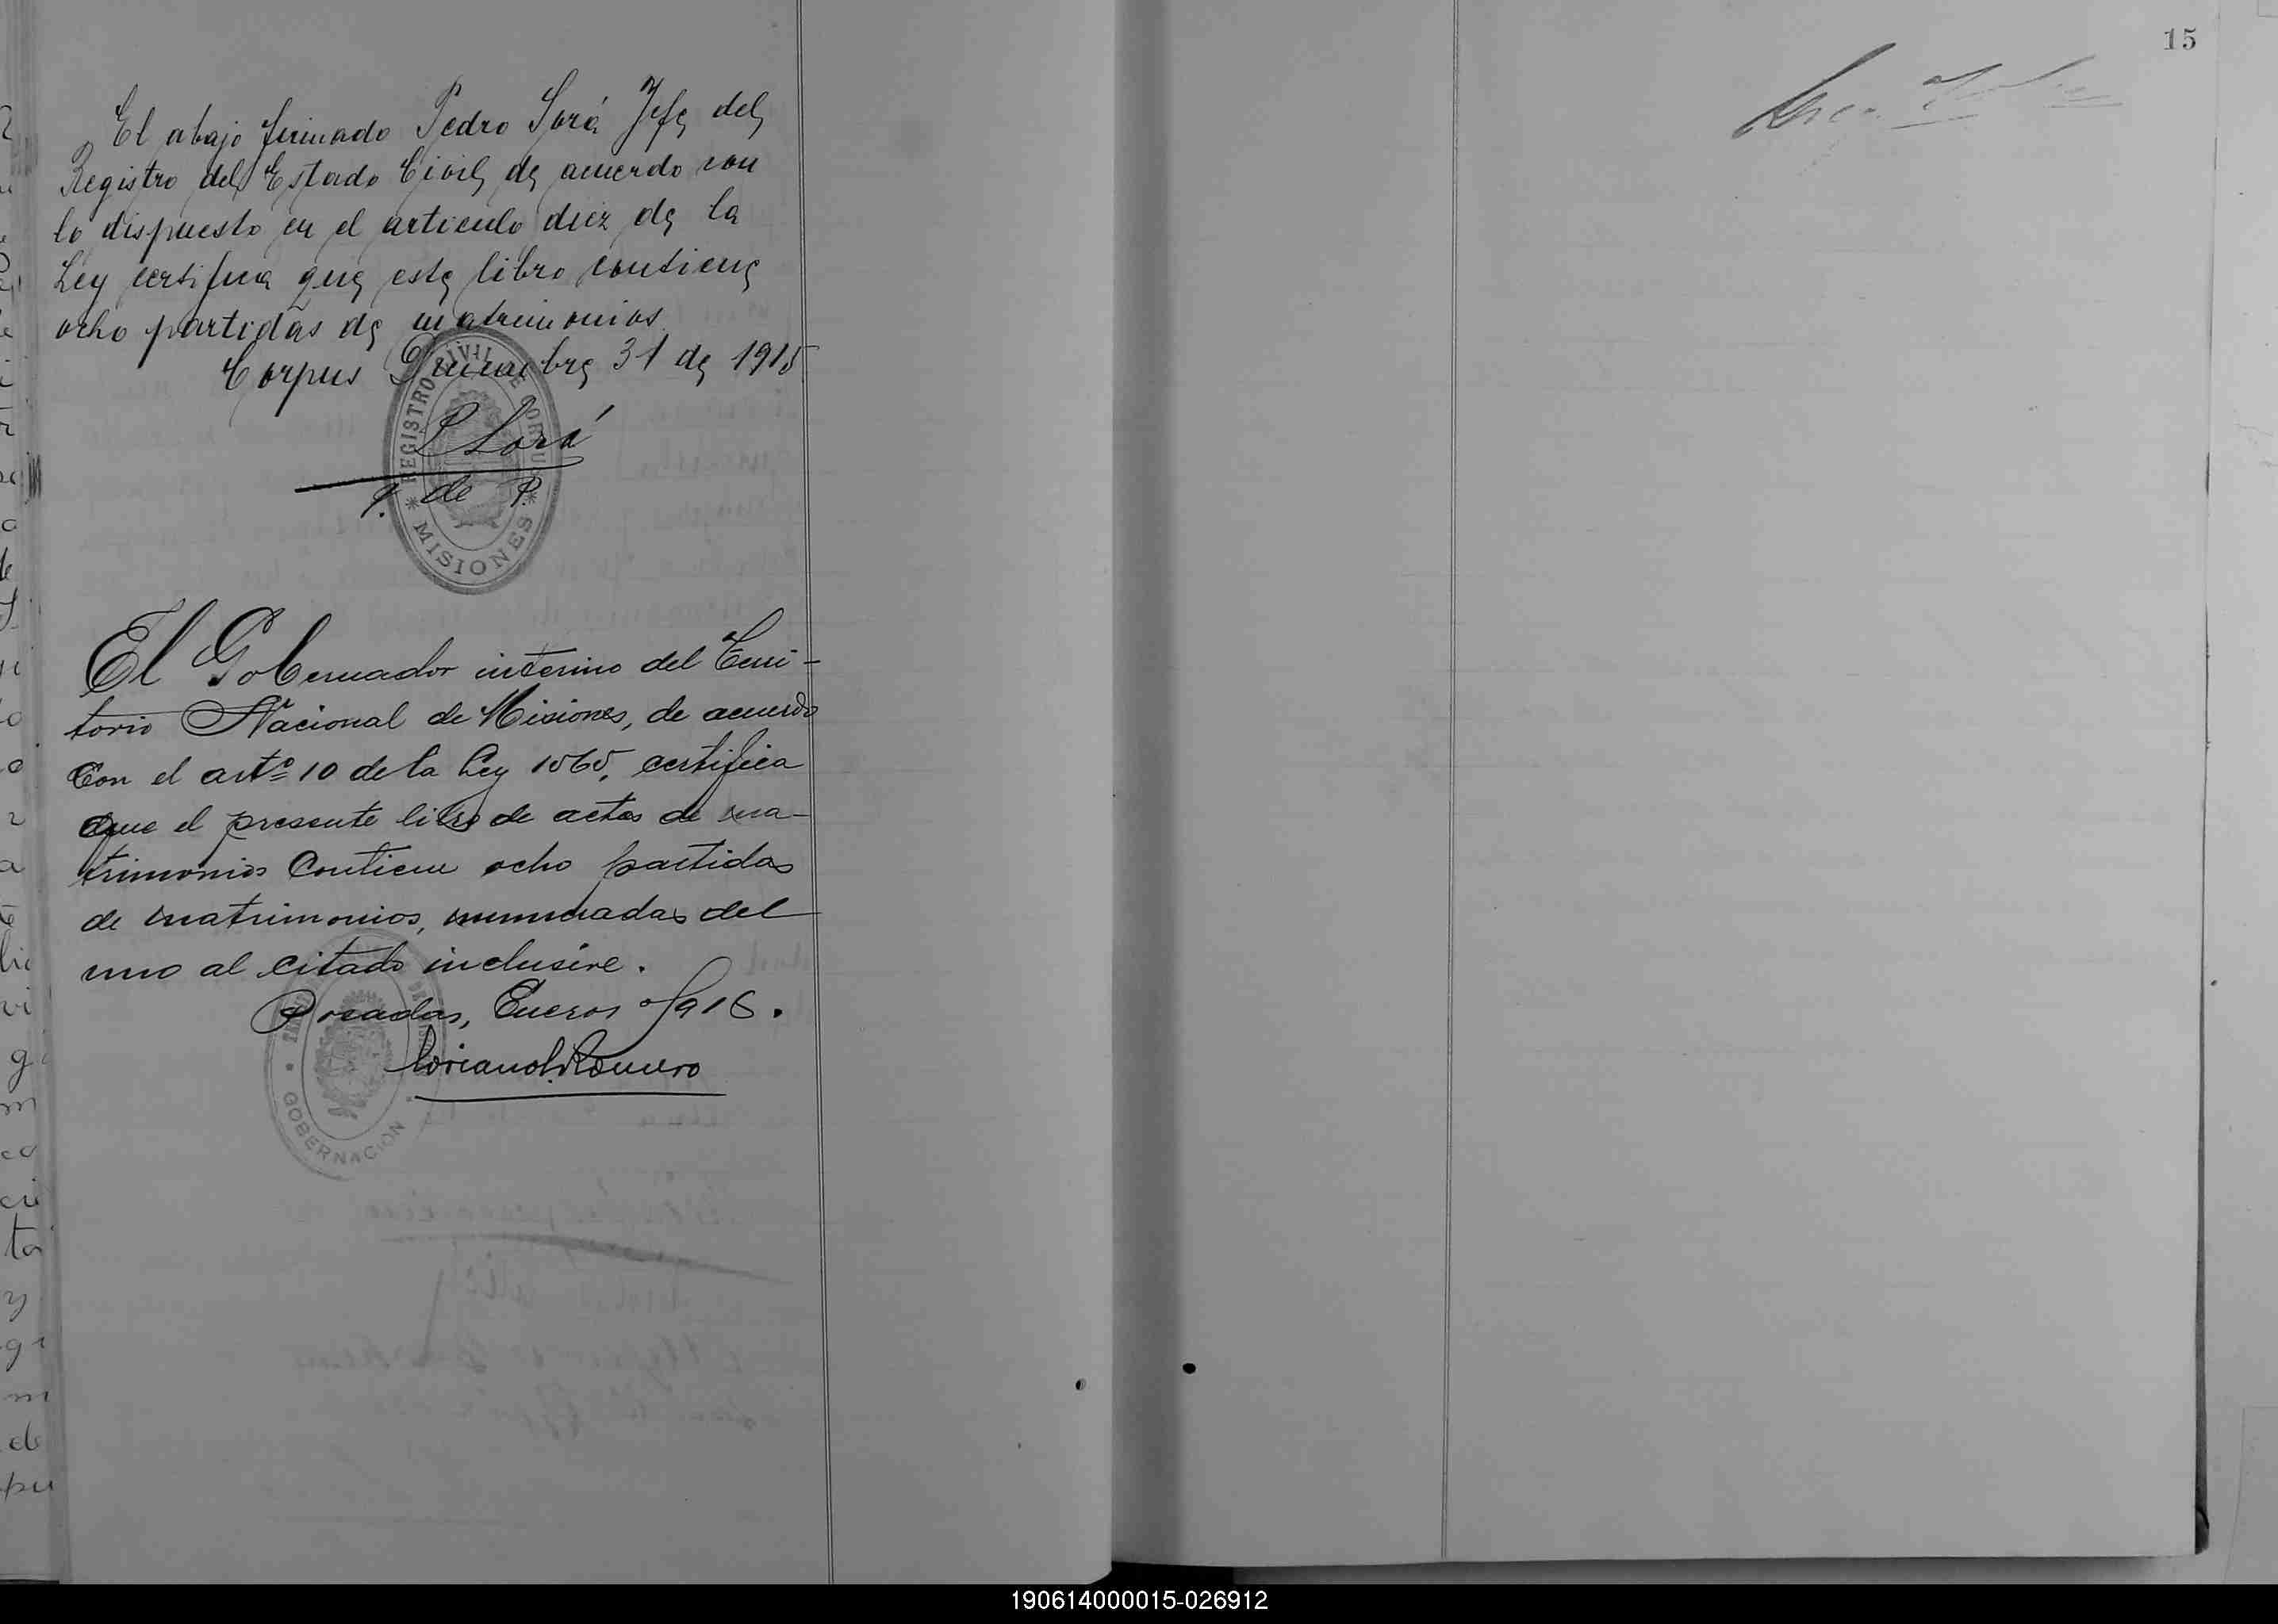 El abajo firmado Pedro Sorá Jefe del
Registro del Estado Civil de acuerdo con
lo dispuesto en el articulo diez de la
Ley certifica que este libro contiene
ocho partidas de matrimonios
Corpus Diciembre 31 de 1915
P Sorá
J. de P.
REGISTRO CIVIL DE CORPUS
* MISIONES *
El Gobernador interino del Terri-
torio Nacional de Misiones, de acuerdo
Con el artº 10 de la Ley 1565, certifica
que el presente libro de actas de ma-
trimonios Contiene ocho partidas
de matrimonios, enumeradas del
uno al citado inclusive.
Posadas, Enero de 1916.
Romero
GOBERNACION
15
190614000015-026912